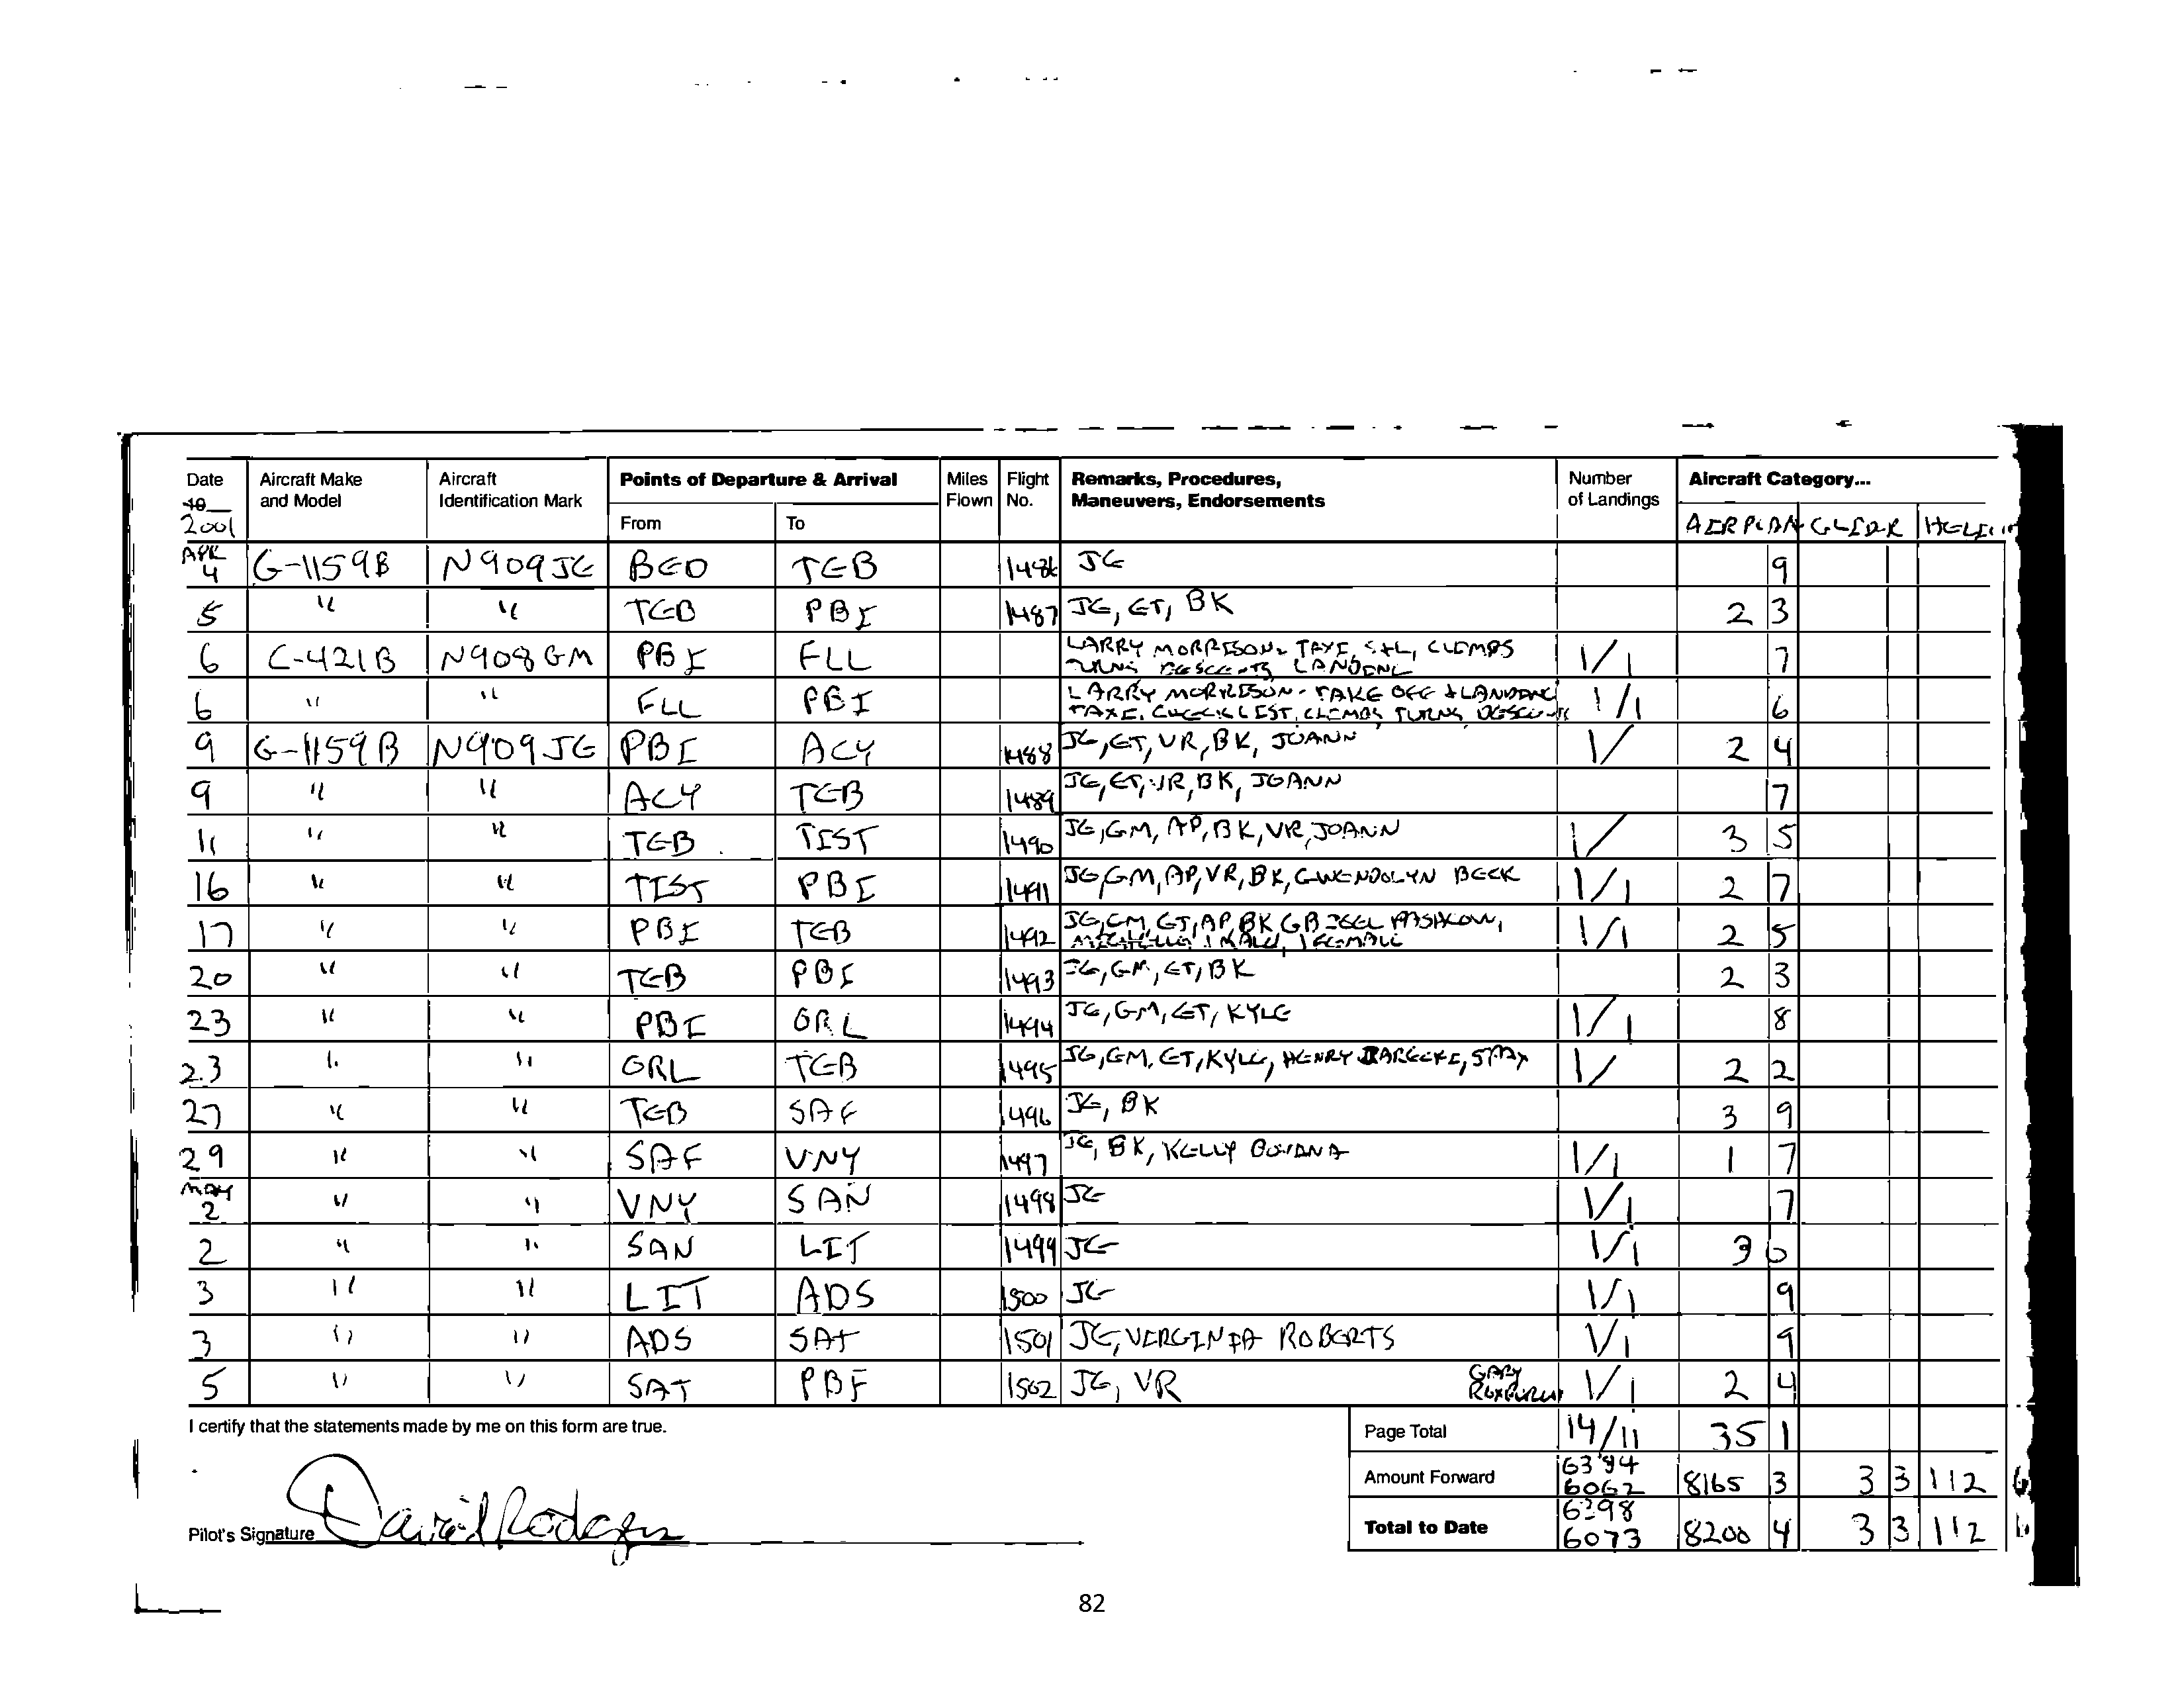 Date Aircraft Make Aircraft Points of Departure & Arrival Miles Flight Remarks, Procedures, Number Aircraft Category...
19__ and Model Identification Mark Flown No. Maneuvers, Endorsements of Landings
2001 From To AIRPLAN GLIDR
APR
4 G-1159B N909JE BED TEB 1486 JE 9
5 " " TEB PBI 1487 JE, ET, BK 2 3
6 C-421B N908GM PBI FLL LARRY MORRISON- TAXI, S+L, CLIMBS 1/1 7
TURNS DESCENTS LANDING
6 " " FLL PBI LARRY MORRISON - TAKE OFF & LANDING 1/1 6
TAXI, CHECKLIST, CLIMBS, TURNS, DESCENTS
9 G-1159B N909JE PBI ACY 1488 JE, ET, VR, BK, JOANN 1/ 2 4
9 " " ACY TEB 1489 JE, ET, VR, BK, JOANN 7
11 " " TEB TIST 1490 JE, GM, AP, BK, VR, JOANN 1/ 3 5
16 " " TIST PBI 1491 JE, GM, AP, VR, BK, GWENDOLYN BECK 1/1 2 7
17 " " PBI TEB 1492 JE, GM, ET, AP, BK, GB 1/1 2 5
1 MALE, 1 FEMALE
20 " " TEB PBI 1493 JE, GM, ET, BK 2 3
23 " " PBI ORL 1494 JE, GM, ET, KYLE 1/1 8
23 " " ORL TEB 1495 JE, GM, ET, KYLE, HENRY 1/ 2 2
27 " " TEB SAF 1496 JE, BK 3 9
29 " " SAF VNY 1497 JE, BK, KELLY 1/1 1 7
MAY
2 " " VNY SAN 1498 JE 1/1 7
2 " " SAN LIT 1499 JE 1/1 3 0
3 " " LIT ADS 1500 JE 1/1 9
3 " " ADS SAT 1501 JE, VIRGINIA ROBERTS 1/1 9
5 " " SAT PBI 1502 JE, VR GARY ROXBURGH 1/1 2 4
I certify that the statements made by me on this form are true. Page Total 14/11 35 1
Amount Forward 6062 8165 3 3 3 112
Pilot's Signature David Rodgers Total to Date 6073 8200 4 3 3 112
82